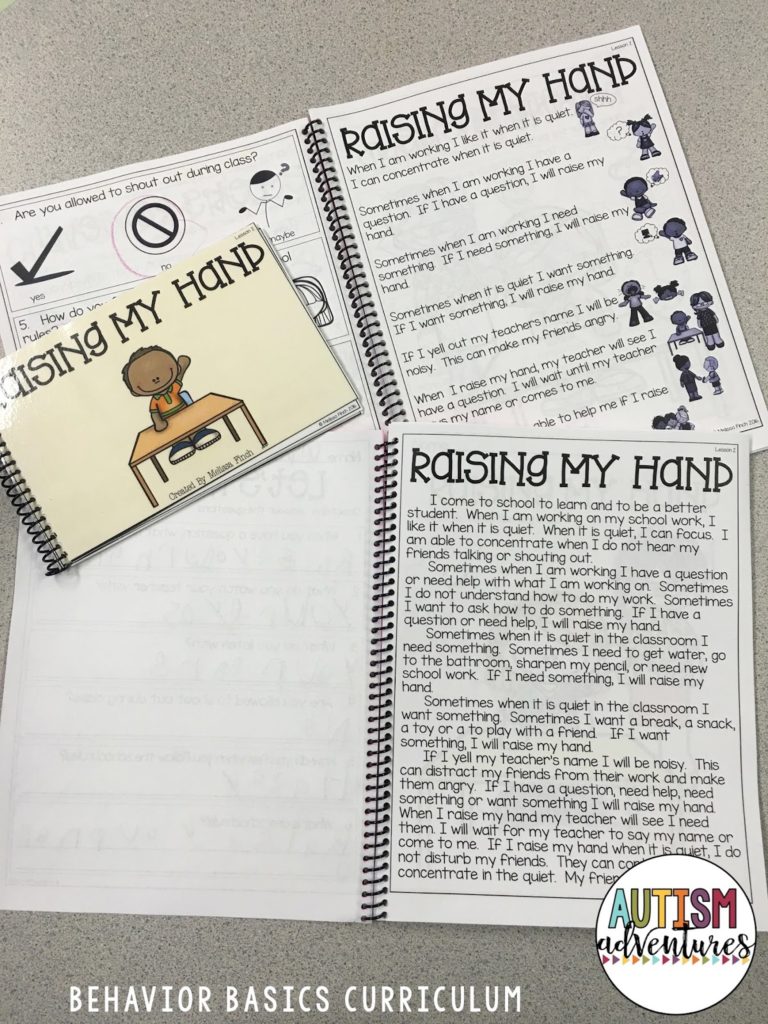 Lesson 2
RAISING MY HAND
shhh
When I am working I like it when it is quiet.
I can concentrate when it is quiet.
Sometimes when I am working I have a
question. If I have a question, I will raise my
hand.
Sometimes when I am working I need
something. If I need something, I will raise my
hand.
Sometimes when it is quiet I want something.
If I want something, I will raise my hand.
If I yell out my teachers name I will be
noisy. This can make my friends angry.
When I raise my hand, my teacher will see I
have a question. I will wait until my teacher
my name or comes to me.
able to help me if I raise
© Melissa Finch 2016
Are you allowed to shout out during class?
yes
no
maybe
5. How do yo
rules?
Lesson 2
RAISING MY HAND
Created By: Melissa Finch
Lesson 2
RAISING MY HAND
I come to school to learn and to be a better
student. When I am working on my school work, I
like it when it is quiet. When it is quiet, I can focus. I
am able to concentrate when I do not hear my
friends talking or shouting out.
Sometimes when I am working I have a question
or need help with what I am working on. Sometimes
I do not understand how to do my work. Sometimes
I want to ask how to do something. If I have a
question or need help, I will raise my hand.
Sometimes when it is quiet in the classroom I
need something. Sometimes I need to get water, go
to the bathroom, sharpen my pencil, or need new
school work. If I need something, I will raise my
hand.
Sometimes when it is quiet in the classroom I
want something. Sometimes I want a break, a snack,
a toy or a to play with a friend. If I want
something, I will raise my hand.
If I yell my teacher's name I will be noisy. This
can distract my friends from their work and make
them angry. If I have a question, need help, need
something or want something I will raise my hand.
When I raise my hand my teacher will see I need
them. I will wait for my teacher to say my name or
come to me. If I raise my hand when it is quiet, I do
not disturb my friends. They can
concentrate in the quiet. My
AUTISM
adventures
BEHAVIOR BASICS CURRICULUM